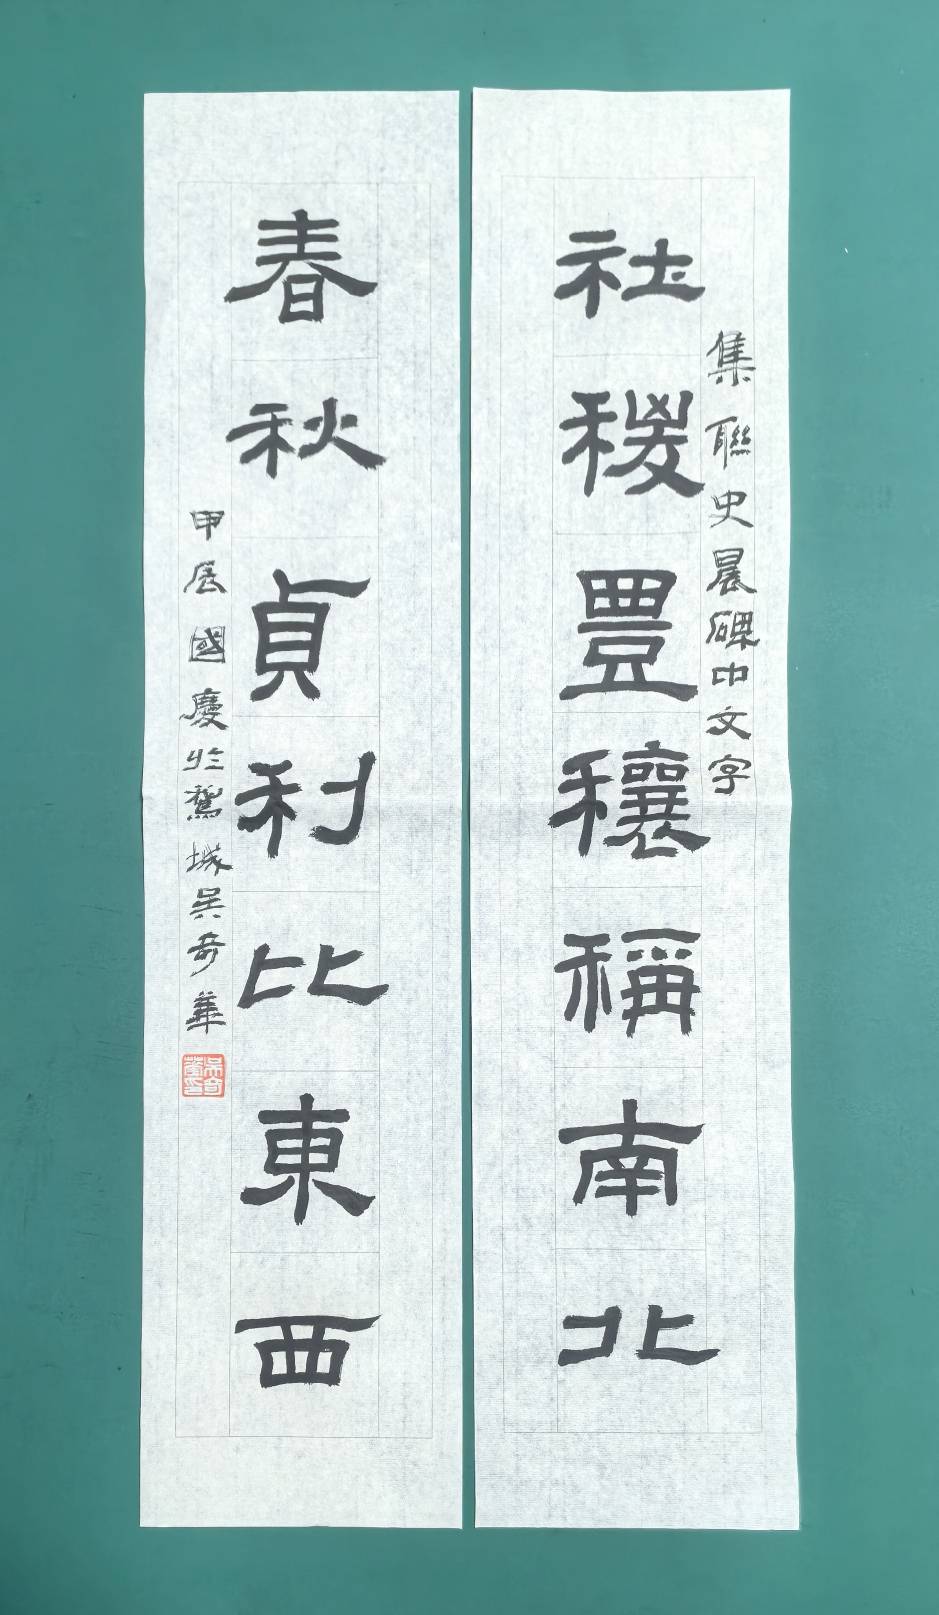 集聯史晨碑中文字
社稷豐穰稱南北
春秋貞利比東西
甲辰國慶於駕城吳奇華